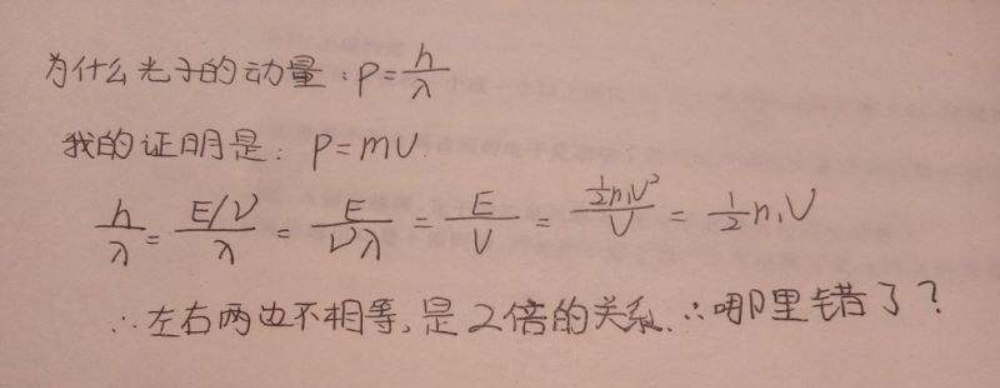 为什么光子的动量:P=h/λ
我的证明是:P=mv.
h/λ = (E/ν)/λ = E/(νλ) = E/v = (½mv²)/v = ½mv
∴左右两边不相等,是2倍的关系.∴哪里错了?